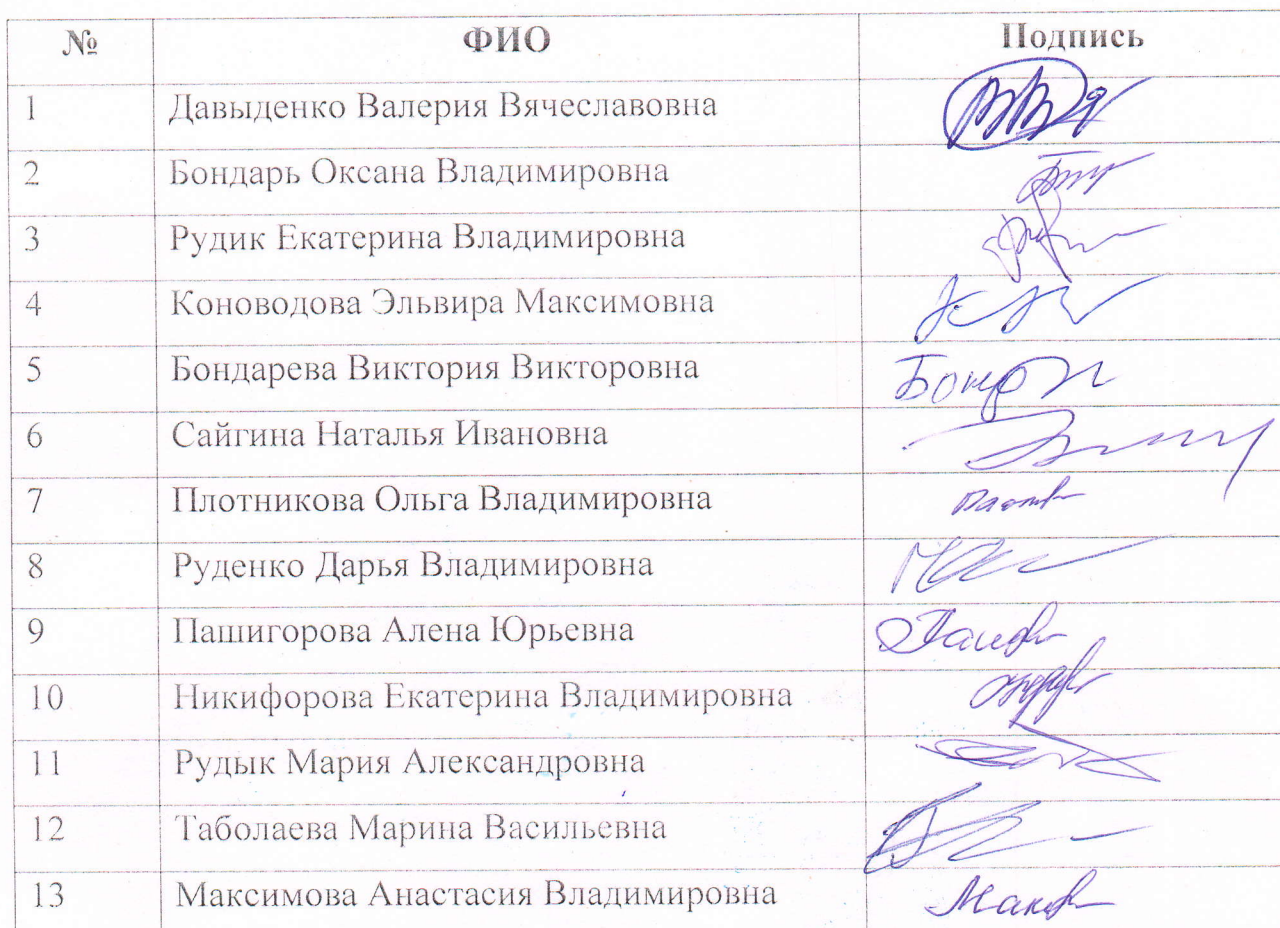 № ФИО Подпись
1 Давыденко Валерия Вячеславовна
2 Бондарь Оксана Владимировна
3 Рудик Екатерина Владимировна
4 Коноводова Эльвира Максимовна
5 Бондарева Виктория Викторовна
6 Сайгина Наталья Ивановна
7 Плотникова Ольга Владимировна
8 Руденко Дарья Владимировна
9 Пашигорова Алена Юрьевна
10 Никифорова Екатерина Владимировна
11 Рудык Мария Александровна
12 Таболаева Марина Васильевна
13 Максимова Анастасия Владимировна